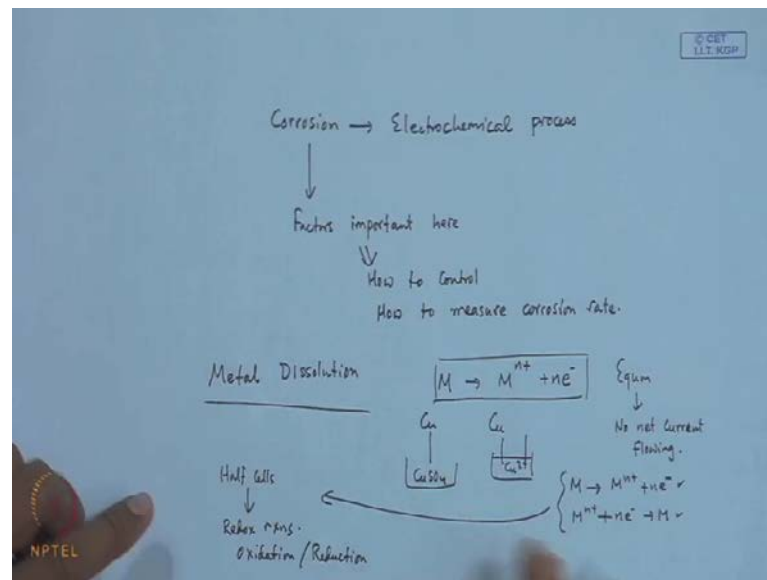 © CET
I.I.T. KGP
Corrosion → Electrochemical process
Factors important here
How to Control
How to measure corrosion rate.
Metal Dissolution
M → Mⁿ⁺ + ne⁻
Equm
No net Current
flowing.
Cu
Cu
CuSO₄
Cu²⁺
Half Cells
M → Mⁿ⁺ + ne⁻ ✓
Mⁿ⁺ + ne⁻ → M ✓
Redox rxns.
Oxidation / Reduction
NPTEL